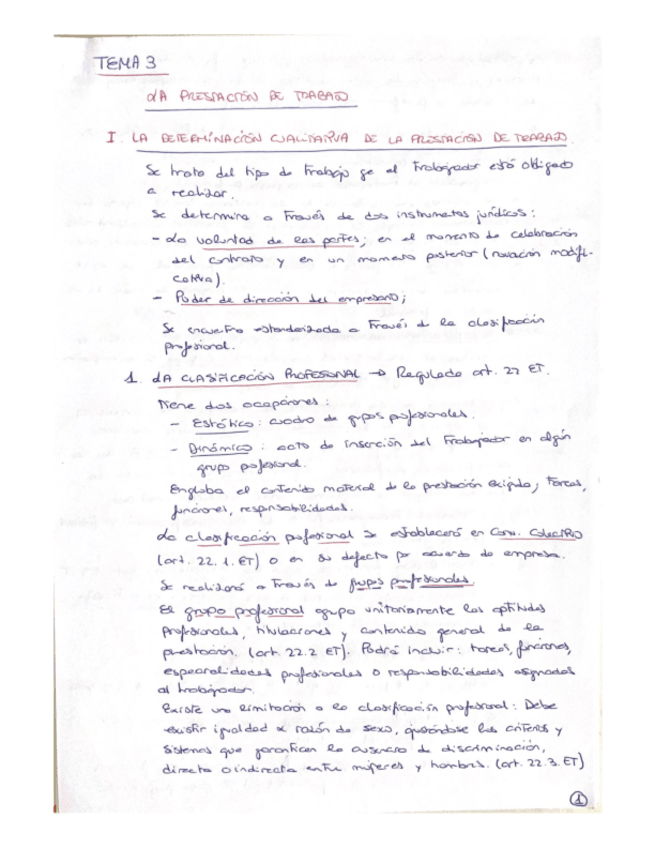 TEMA 3
LA PRESTACIÓN DE TRABAJO
I. LA DETERMINACIÓN CUALITATIVA DE LA PRESTACIÓN DE TRABAJO.
Se trata del tipo de trabajo qe el trabajador está obligado
a realizar.
Se determina a través de dos instrumentos jurídicos:
- La voluntad de las partes; en el momento de celebración
del contrato y en un momento posterior (novación modifi-
cativa).
- Poder de dirección del empresario;
Se encuentra estandarizada a través de la clasificación
profesional.
1. LA CLASIFICACIÓN PROFESIONAL → Regulado art. 22 ET.
Tiene dos acepciones:
- Estático: cuadro de grupos profesionales.
- Dinámico: acto de inserción del trabajador en algún
grupo profesional.
Engloba el contenido material de la prestación exigida; tareas,
funciones, responsabilidades.
La clasificación profesional se establecerá en Conv. Colectivo
(art. 22. 1. ET) o en su defecto por acuerdo de empresa.
Se realizará a través de grupos profesionales.
El grupo profesional agrupa unitariamente las aptitudes
profesionales, titulaciones y contenido general de la
prestación. (art. 22.2 ET). Podrá incluir: tareas, funciones,
especialidades profesionales o responsabilidades asignadas
al trabajador.
Existe una limitación a la clasificación profesional: Debe
existir igualdad x razón de sexo, ajustándose los criterios y
sistemas que garanticen la ausencia de discriminación,
directa o indirecta entre mujeres y hombres. (art. 22.3. ET)
1